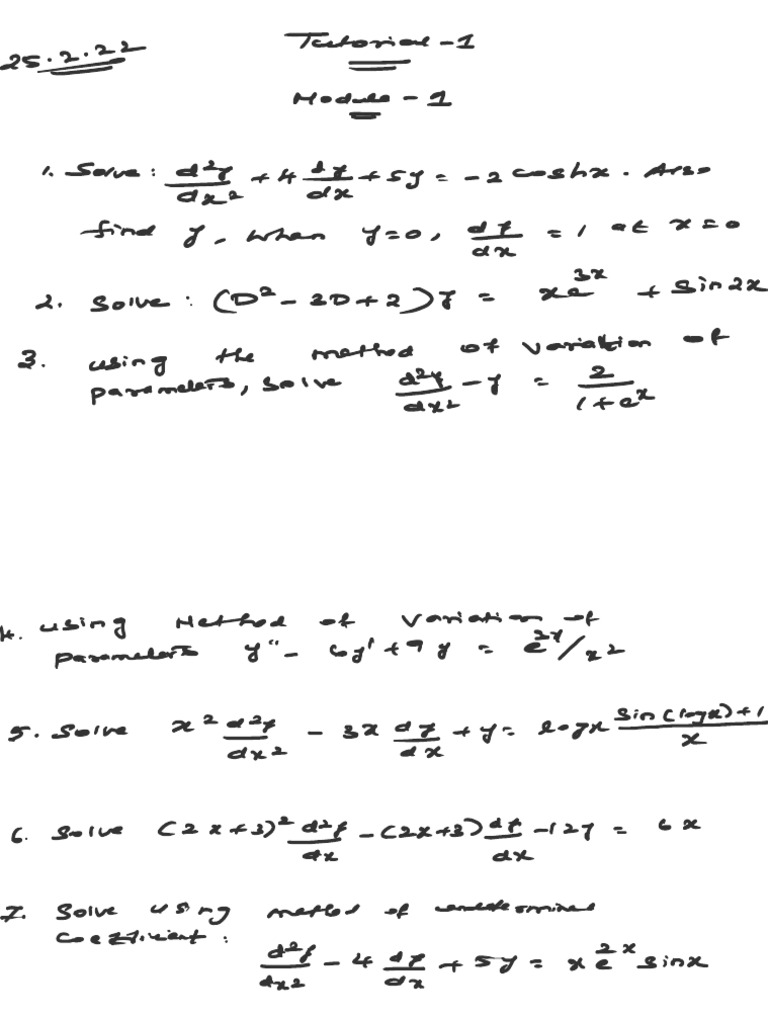 25.2.22
Tutorial-1
Module-1
1. Solve: d²y/dx² + 4 dy/dx + 5y = -2 coshx. Also
find y, when y=0, dy/dx = 1 at x=0
2. Solve: (D² - 3D + 2)y = xe^3x + sin2x
3. using the method of variation of
parameters, solve d²y/dx² - y = 2/(1+e^x)
4. using Method of Variation of
Parameters y'' - 6y' + 9y = e^3x/x²
5. Solve x² d²y/dx² - 3x dy/dx + y = logx sin(logx)+1/x
6. Solve (2x+3)² d²y/dx - (2x+3) dy/dx - 12y = 6x
7. Solve using method of undetermined
coefficient:
d²y/dx² - 4 dy/dx + 5y = xe^2x sinx